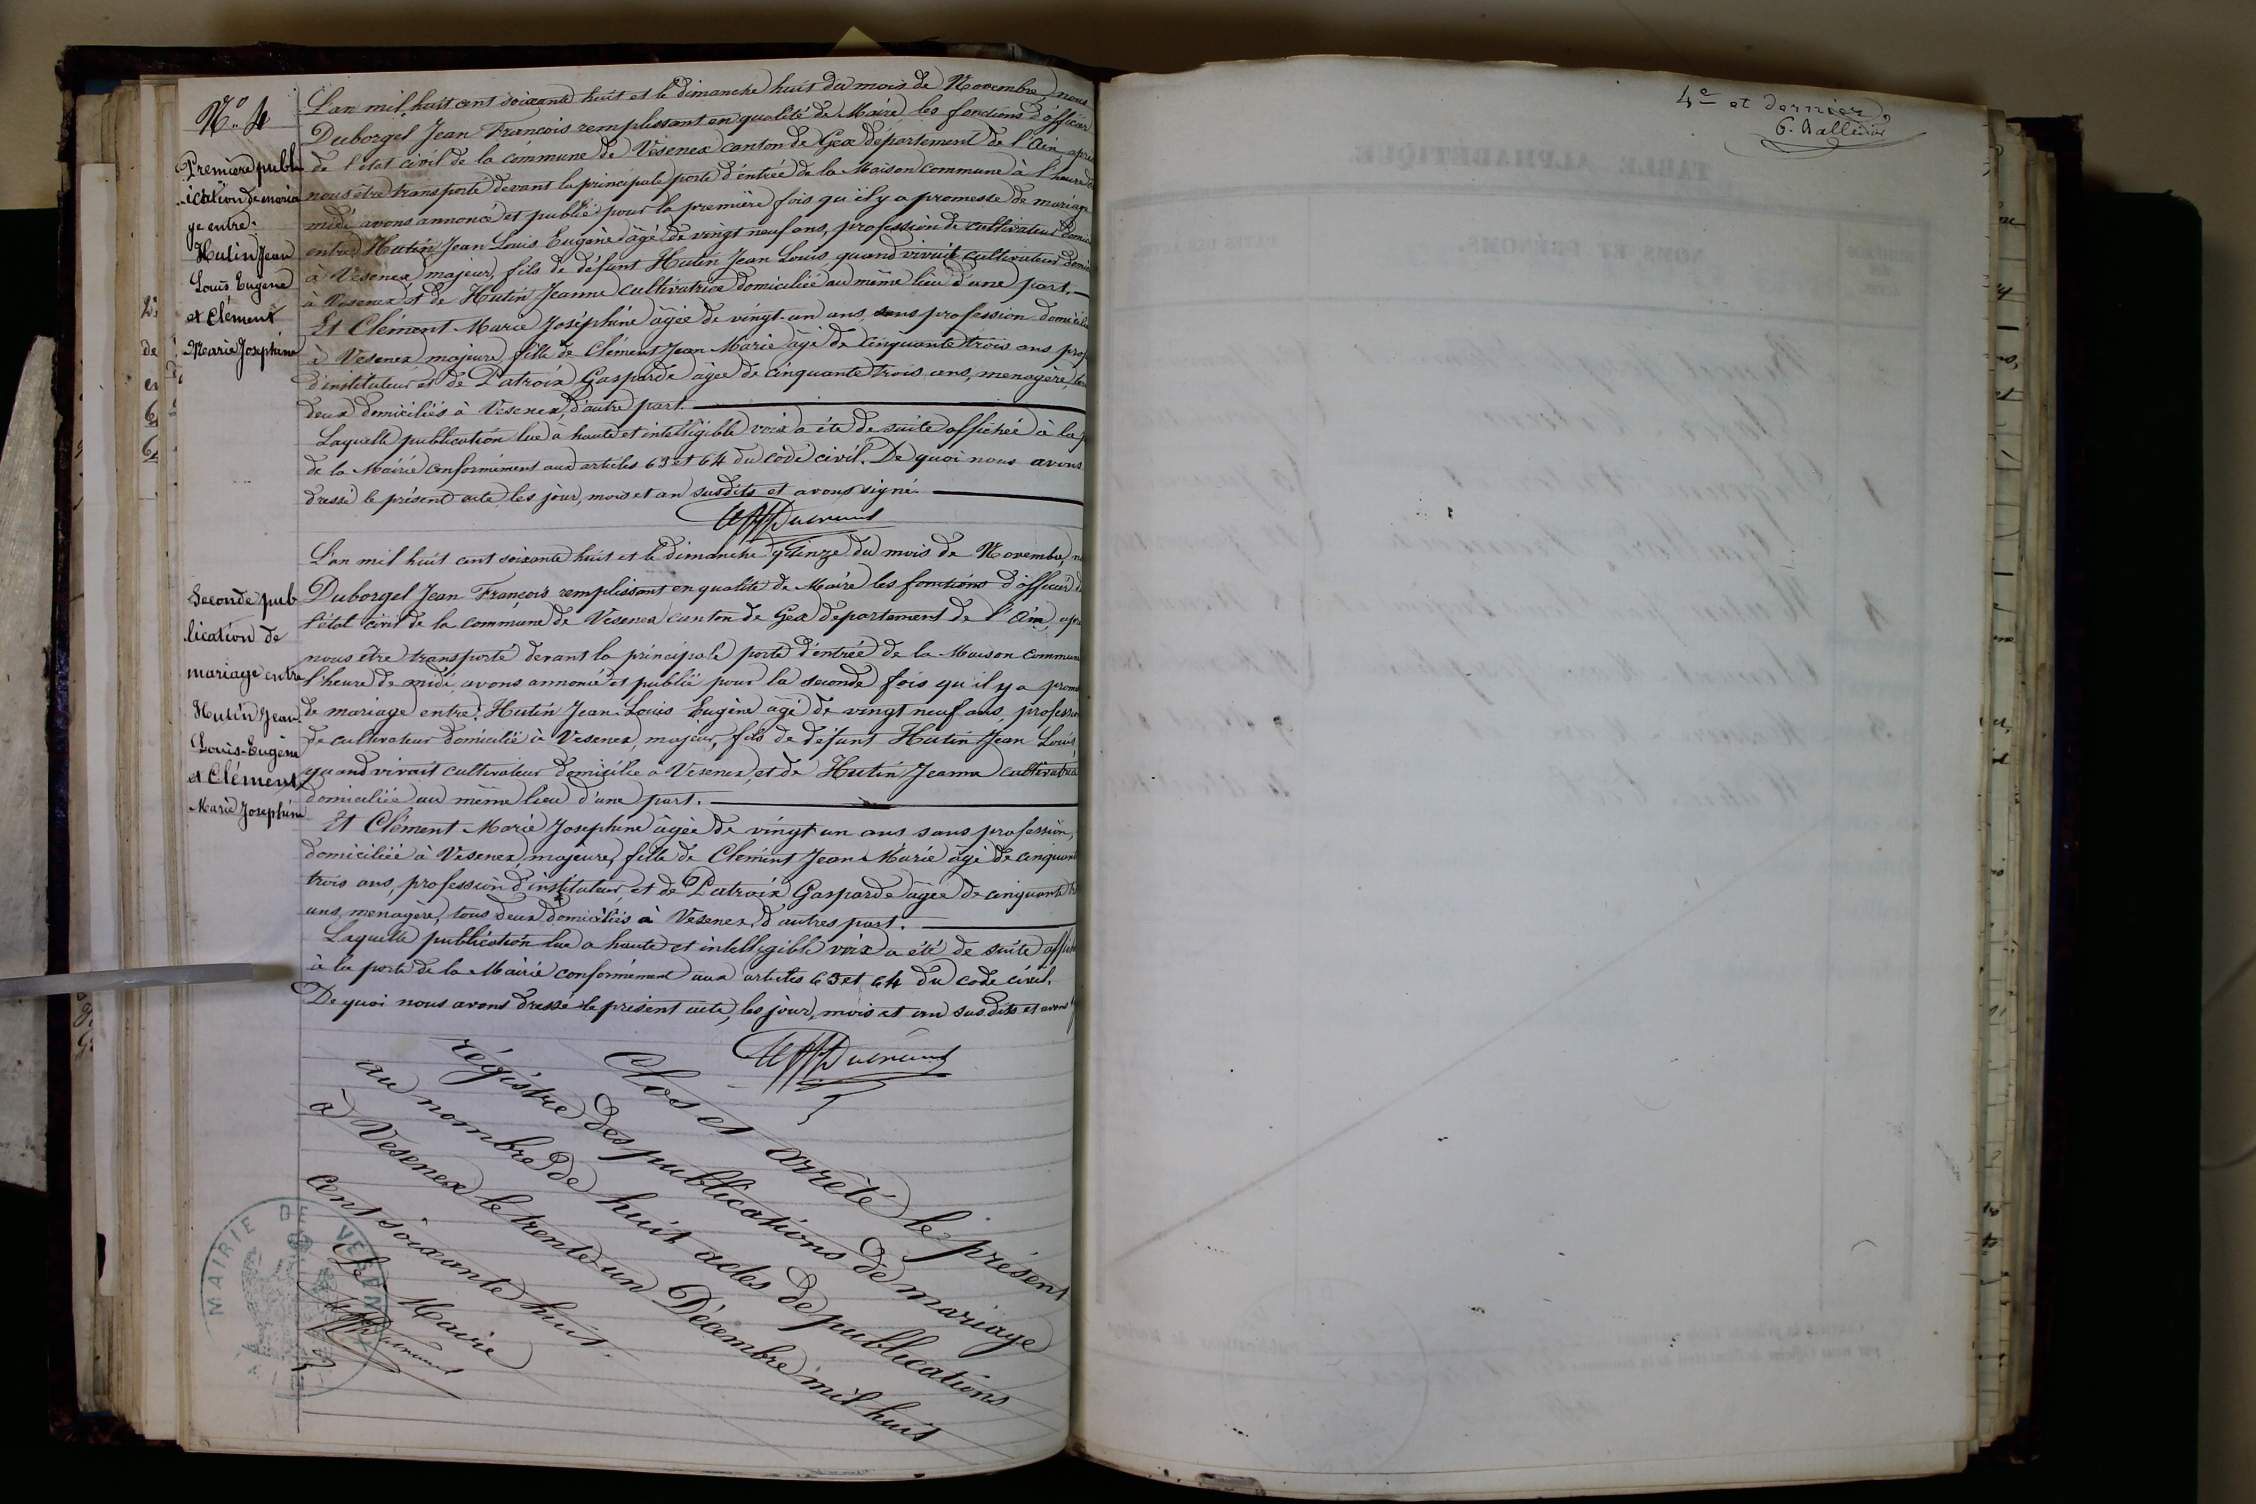 N.º 4
Première publi
ication de maria
ge entre:
Hutin Jean
Louis Eugène
et Clément
Marie Joséphine
L'an mil huit cent soixante huit et le dimanche huit du mois de Novembre, nous
Duborgel Jean François remplissant en qualité de Maire les fonctions d'officier
de l'état civil de la commune de Vesenex canton de Gex département de l'Ain après
nous être transporté devant la principale porte d'entrée de la Maison commune à l'heure de
midi avons annoncé et publié pour la première fois qu'il y a promesse de mariage
entre Hutin Jean Louis Eugène âgé de vingt neuf ans, profession de cultivateur domici
à Vesenex majeur, fils de défunt Hutin Jean Louis quand vivait cultivateur domici
à Vesenex et de Hutin Jeanne cultivatrice domiciliée au même lieu d'une part.
Et Clément Marie Joséphine âgée de vingt-un ans, sans profession domiciliée
à Vesenex majeure fille de Clément Jean Marie âgé de cinquante trois ans prof
d'instituteur et de Patroix Gasparde âgée de cinquante trois ans, menagère,
deux domiciliés à Vesenex, d'autre part.
Laquelle publication lue à haute et intelligible voix a été de suite affichée à la p
de la Mairie conformément aux articles 63 et 64 du code civil. De quoi nous avons
dressé le présent acte les jour, mois et an susdits et avons signé.
Seconde pub
lication de
mariage entre
Hutin Jean
Louis-Eugène
et Clément
Marie Joséphine
L'an mil huit cent soixante huit et le dimanche quinze du mois de Novembre, n
Duborgel Jean François remplissant en qualité de Maire les fonctions d'officier d
l'état civil de la commune de Vesenex canton de Gex departement de l'Ain, apr
nous être transporté devant la principale porte d'entrée de la Maison commune
l'heure de midi, avons annoncé et publié pour la seconde fois qu'il y a prome
de mariage entre: Hutin Jean-Louis Eugène âgé de vingt neuf ans, profession
de cultivateur domicilié à Vesenex, majeur, fils de défunt Hutin Jean Louis,
quand vivait cultivateur domicilié à Vesenex, et de Hutin Jeanne cultivatrice
domiciliée au même lieu d'une part.
Et Clément Marie Joséphine âgée de vingt un ans sans profession,
domiciliée à Vesenex, majeure, fille de Clément Jean Marie âgé de cinquante
trois ans, profession d'instituteur, et de Patroix Gasparde âgée de cinquante
ans, menagère, tous deux domiciliés à Vesenex, d'autres part.
Laquelle publication lue a haute et intelligible voix a été de suite affich
à la porte de la Mairie conformément aux articles 63 et 64 du code civil.
De quoi nous avons dressé le présent acte, les jour, mois et an susdits et avons
Clos et arrêté le présent
régistre des publications de mariage
au nombre de huit actes de publications
à Vesenex le trente un Décembre mil huit
cent soixante huit.
Le Maire
MAIRIE DE VESENEX
4e et dernier